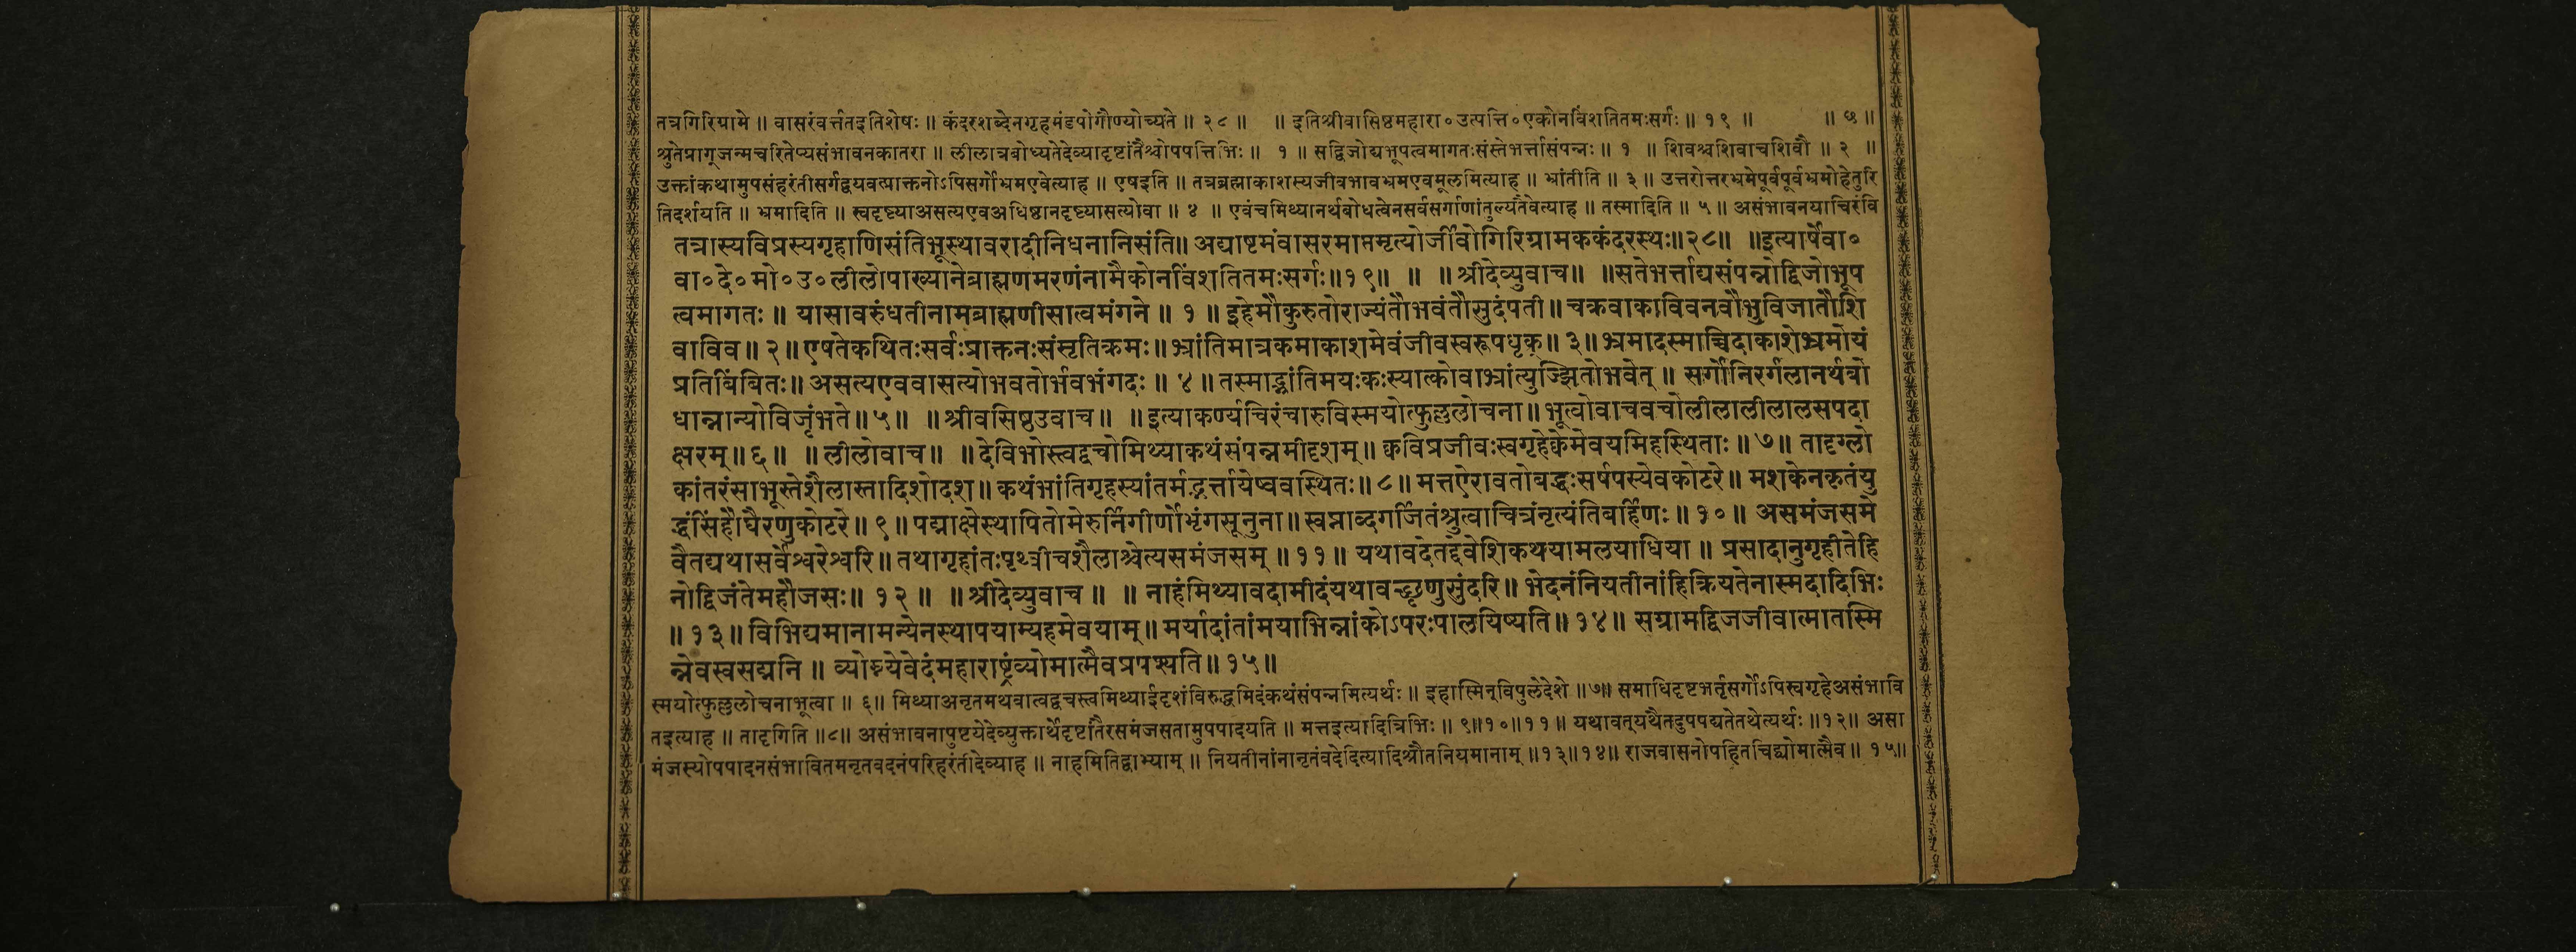 तत्रगिरिग्रामे ॥ वासरंवर्त्ततइतिशेषः ॥ कंदरशब्देनगृहमंडपोगौण्योच्यते ॥ २८ ॥ ॥ इतिश्रीवासिष्ठमहारा० उत्पत्ति० एकोनविंशतितमःसर्गः ॥ १९ ॥ ॥ ७ ॥
श्रुतेप्राग्जन्मचरितेप्यसंभावनकातरा ॥ लीलात्रबोध्यतेदेव्यादृष्टांतैश्चोपपत्तिभिः ॥ १ ॥ सद्विजोद्यभूपत्वमागतःसंस्तेभर्त्तासंपन्नः ॥ १ ॥ शिवश्चशिवाचशिवौ ॥ २ ॥
उक्तांकथामुपसंहरंतीसर्गद्वयवत्प्राक्तनोऽपिसर्गोभ्रमएवेत्याह ॥ एषइति ॥ तत्रब्रह्माकाशस्यजीवभावभ्रमएवमूलमित्याह ॥ भ्रांतीति ॥ ३ ॥ उत्तरोत्तरभ्रमेपूर्वपूर्वभ्रमोहेतुरि
तिदर्शयति ॥ भ्रमादिति ॥ स्वदृष्ट्याअसत्यएवअधिष्ठानदृष्ट्यासत्योवा ॥ ४ ॥ एवंचमिथ्यानर्थबोधत्वेनसर्वसर्गाणांतुल्यतैवेत्याह ॥ तस्मादिति ॥ ५ ॥ असंभावनयाचिरंवि
तत्रास्यविप्रस्यगृहाणिसंतिभूस्थावरादीनिधनानिसंति॥ अद्याष्टमंवासरमाप्तमृत्योर्जीवोगिरिग्रामककंदरस्थः॥२८॥ ॥इत्यार्षेवा०
वा०दे०मो०उ०लीलोपाख्यानेब्राह्मणमरणंनामैकोनविंशतितमःसर्गः॥१९॥ ॥ ॥श्रीदेव्युवाच॥ ॥सतेभर्त्ताद्यसंपन्नोद्विजोभूप
त्वमागतः ॥ यासावरुंधतीनामब्राह्मणीसात्वमंगने ॥ १ ॥ इहेमौकुरुतोराज्यंतौभवंतौसुदंपती॥चक्रवाकाविवनवौभुविजातौशि
वाविव॥२॥एषतेकथितःसर्वःप्राक्तनःसंसृतिक्रमः॥भ्रांतिमात्रकमाकाशमेवंजीवस्वरूपधृक्॥३॥भ्रमादस्माच्चिदाकाशेभ्रमोयं
प्रतिबिंबितः॥असत्यएववासत्योभवतोर्भवभंगदः ॥ ४ ॥तस्माद्भ्रांतिमयःकःस्यात्कोवाभ्रांत्युज्झितोभवेत्॥ सर्गोनिरर्गलानर्थबो
धान्नान्योविजृंभते॥५॥ ॥श्रीवसिष्ठउवाच॥ ॥इत्याकर्ण्यचिरंचारुविस्मयोत्फुल्ललोचना॥भूत्वोवाचवचोलीलालीलालसपदा
क्षरम्॥६॥ ॥लीलोवाच॥ ॥देविभोस्त्वद्वचोमिथ्याकथंसंपन्नमीदृशम्॥क्वविप्रजीवःस्वगृहेक्वेमेवयमिहस्थिताः॥७॥ तादृग्लो
कांतरंसाभूस्तेशैलास्तादिशोदश॥कथंभांतिगृहस्यांतर्मद्भर्त्तायेष्ववस्थितः॥८॥मत्तऐरावतोबद्धःसर्षपस्येवकोटरे॥मशकेनकृतंयु
द्धंसिंहौघैरणुकोटरे॥९॥पद्माक्षेस्थापितोमेरुर्निगीर्णोभृंगसूनुना॥स्वप्नाब्दगर्जितंश्रुत्वाचित्रंनृत्यंतिबर्हिणः॥१०॥ असमंजसमे
वैतद्यथासर्वेश्वरेश्वरि॥तथागृहांतःपृथ्वीचशैलाश्चेत्यसमंजसम् ॥११॥ यथावदेतद्देवेशिकथयामलयाधिया ॥ प्रसादानुगृहीतेहि
नोद्विजंतेमहौजसः॥ १२॥ ॥श्रीदेव्युवाच ॥ ॥ नाहंमिथ्यावदामीदंयथावच्छृणुसुंदरि॥ भेदनंनियतीनांहिक्रियतेनास्मदादिभिः
॥१३॥विभिद्यमानामन्येनस्थापयाम्यहमेवयाम्॥मर्यादांतांमयाभिन्नांकोऽपरःपालयिष्यति॥१४॥ सग्रामद्विजजीवात्मातस्मि
न्नेवस्वसद्मनि ॥ व्योम्न्येवेदंमहाराष्ट्रंव्योमात्मैवप्रपश्यति॥१५॥
स्मयोत्फुल्ललोचनाभूत्वा ॥ ६॥ मिथ्याअनृतमथवात्वद्वचस्त्वमिथ्याईदृशंविरुद्धमिदंकथंसंपन्नमित्यर्थः ॥ इहास्मिन्विपुलेदेशे ॥७॥ समाधिदृष्टभर्तृसर्गोऽपिस्वगृहेअसंभावि
तइत्याह ॥ तादृगिति ॥८॥ असंभावनापुष्टयेदेव्युक्तार्थेदृष्टांतैरसमंजसतामुपपादयति ॥ मत्तइत्यादित्रिभिः ॥ ९॥१०॥११॥ यथावत्यथैतदुपपद्यतेतथेत्यर्थः ॥१२॥ असा
मंजस्योपपादनसंभावितमनृतवदनंपरिहरंतीदेव्याह ॥ नाहमितिद्वाभ्याम् ॥ नियतीनांनानृतंवदेदित्यादिश्रौतनियमानाम् ॥१३॥१४॥ राजवासनोपहितचिद्व्योमात्मैव॥ १५॥